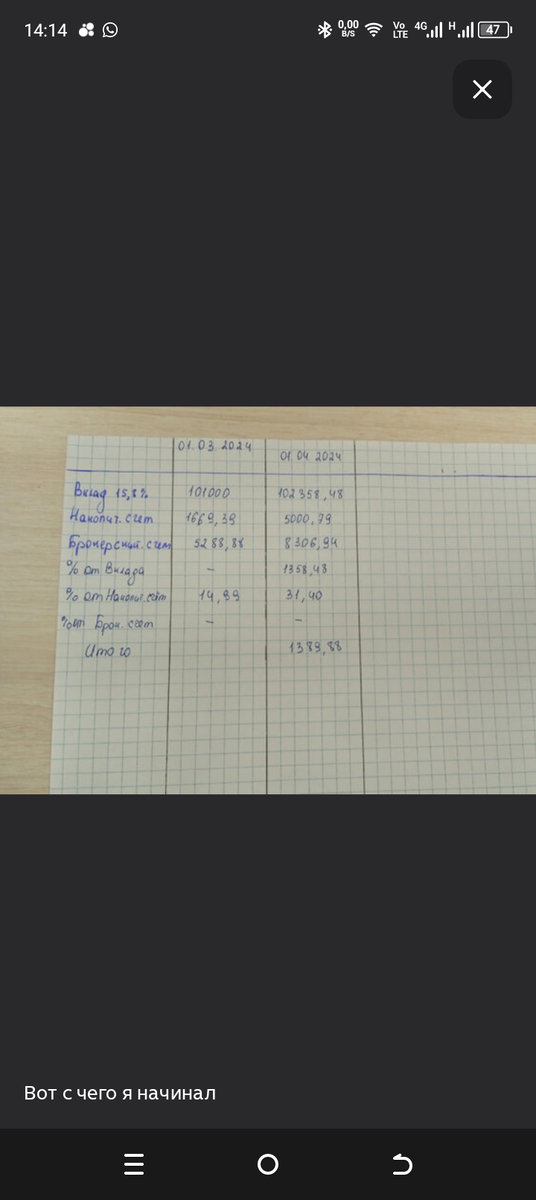 14:14 0,00 B/S Vo LTE 4G H 47
01.03.2024 01.04.2024
Вклад 15,8% 101000 102358,48
Накопит. счет 1669,39 5000,79
Брокерский. счет 5288,88 8306,94
% от Вклада – 1358,48
% от Накопит. счёт 14,99 31,40
% от Брок. счет – –
Итого 1389,88
Вот с чего я начинал